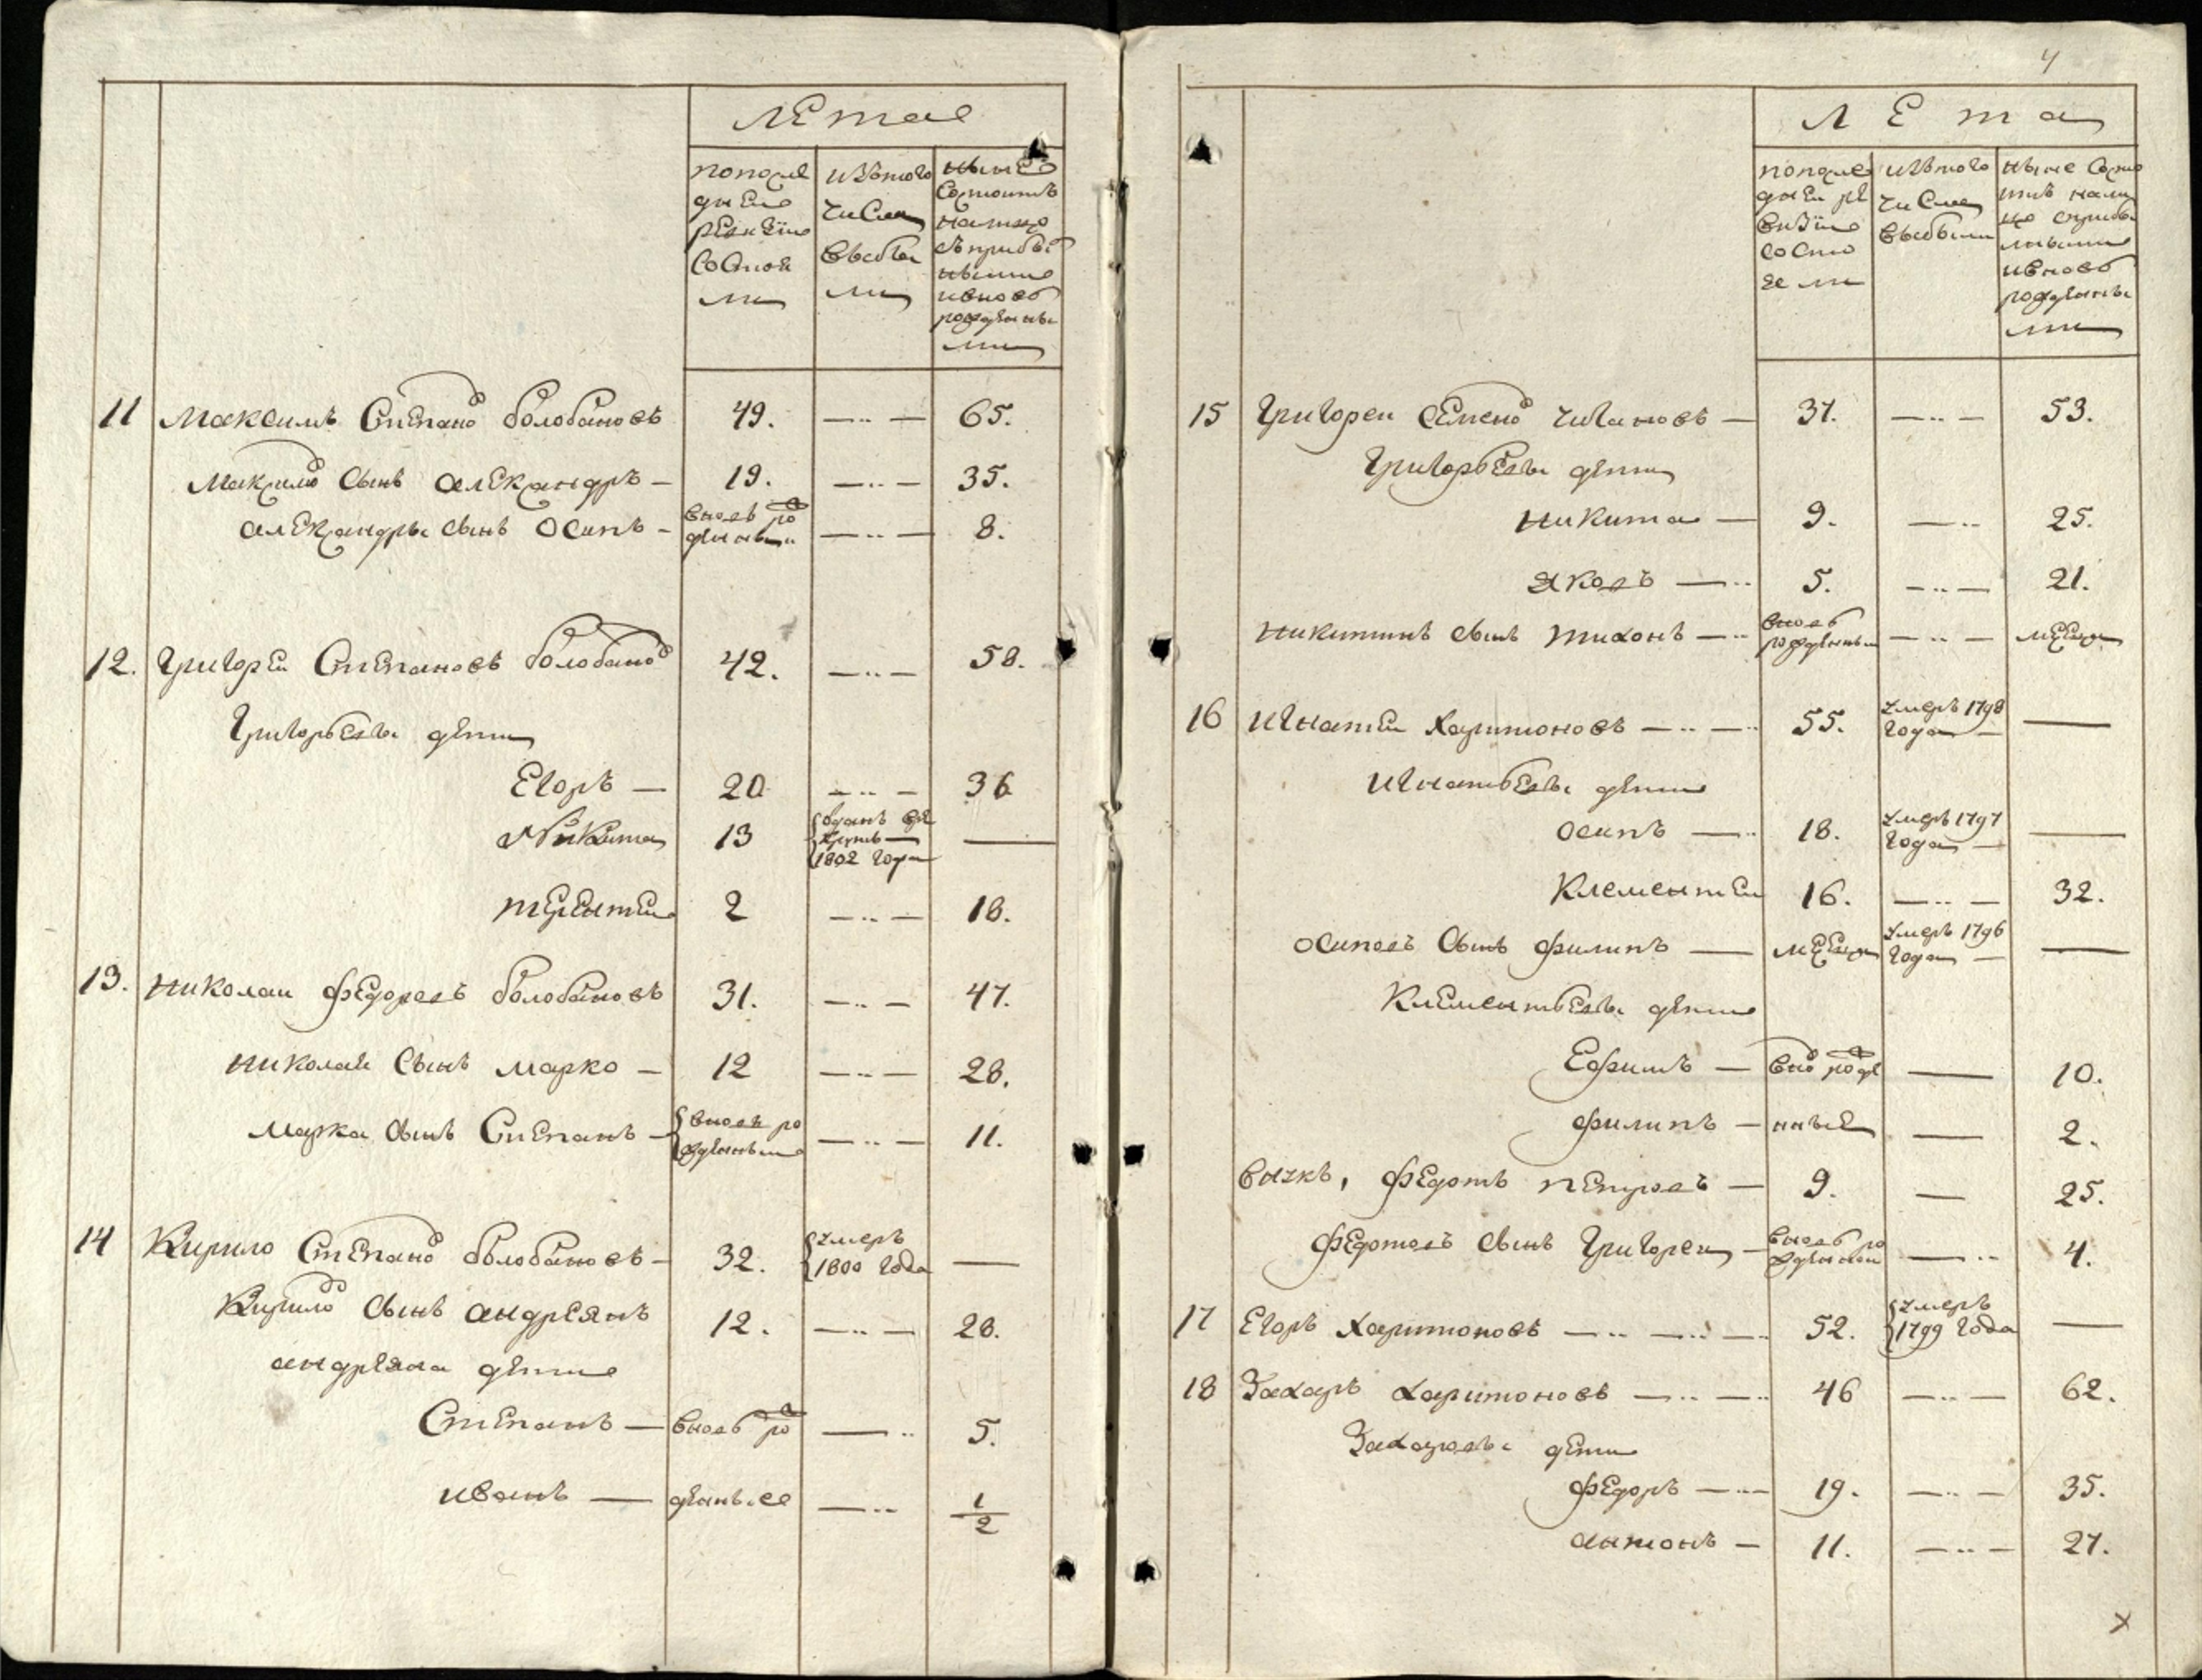 лета
пополе
днеи
ревизии
состоя
ли
изътого
числа
выбы
ли
ныне
состоитъ
налицо
съприбы
лыми
ивновь
рожденны
ми
11 Максимъ Степано болобановъ 49. —..— 65.
Максимо сынъ александръ — 19. —..— 35.
александры сынъ осипъ — вновь ро
жденныи —..— 8.
12. Григореи Степановъ болобано 42. —..— 58.
Григорьевы дети
Егоръ — 20 —..— 36
Никита 13 отданъ в ре
круты
1802 года —
терентеи 2 —..— 18.
13. николаи федоровъ болобановъ 31. —..— 47.
николаи сынъ марко — 12 —..— 28.
марка сынъ Степанъ — вновь ро
жденныи —..— 11.
14 Кирило Степано болобановъ — 32. умеръ
1800 года —
Кирило сынъ андреянъ 12. —..— 28.
андреяна дети
Степанъ — вновь ро —.. 5.
иванъ — жденные —.. 1/2
4
лета
пополе
днеи ре
визии
состо
яли
изътого
числа
выбыли
ныне состо
итъ нали
цо сприбы
лыми
ивновь
рожденны
ми
15 Григореи Семено чигановъ — 37. —..— 53.
Григорьевы дети
никита — 9. —.. 25.
яковъ —.. 5. —..— 21.
никитинъ сынъ тихонъ —.. вновь
рожденныи —..— месяцъ
16 игнатеи харитоновъ —..—.. 55. умеръ 1798
года — —
игнатьевы дети
осипъ —.. 18. умеръ 1797
года — —
Клементеи 16. —..— 32.
осиповъ сынъ филипъ — месяцъ умеръ 1796
года — —
Клементьевы дети
Ефимъ — вно рожде — 10.
филипъ — нные — 2.
внукъ, федотъ петровъ — 9. — 25.
федотовъ сынъ григореи — вновь ро
жденнои —.. 4.
17 Егоръ харитоновъ —..—..—.. 52. умеръ
1799 года —
18 Захаръ харитоновъ —..—.. 46 —..— 62.
Захаровы дети
федоръ —..— 19. —..— 35.
антонъ — 11. —..— 27.
х